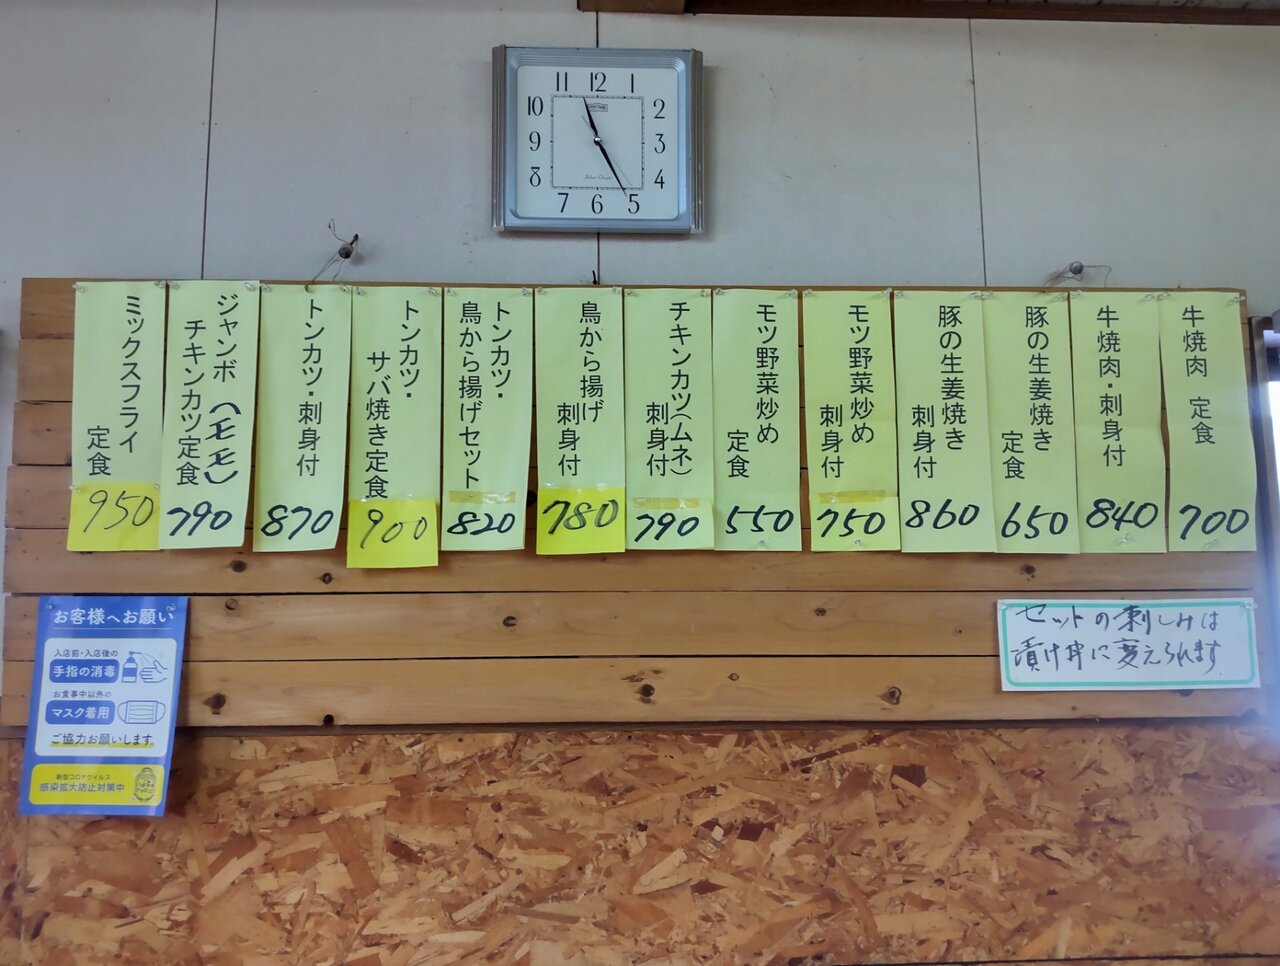 11 12 1
10 2
9 3
8 4
7 6 5
牛焼肉 定食
700
牛焼肉・刺身付
840
豚の生姜焼き
定食
650
豚の生姜焼き
刺身付
860
モツ野菜炒め
刺身付
750
モツ野菜炒め
定食
550
チキンカツ(ムネ)
刺身付
790
鳥から揚げ
刺身付
780
トンカツ・
鳥から揚げセット
820
トンカツ・
サバ焼き定食
900
トンカツ・刺身付
870
ジャンボ(モモ)
チキンカツ定食
790
ミックスフライ
定食
950
セットの刺しみは
漬け丼に変えられます
お客様へお願い
入店前・入店後の
手指の消毒
お食事中以外の
マスク着用
ご協力お願いします
新型コロナウイルス
感染拡大防止対策中